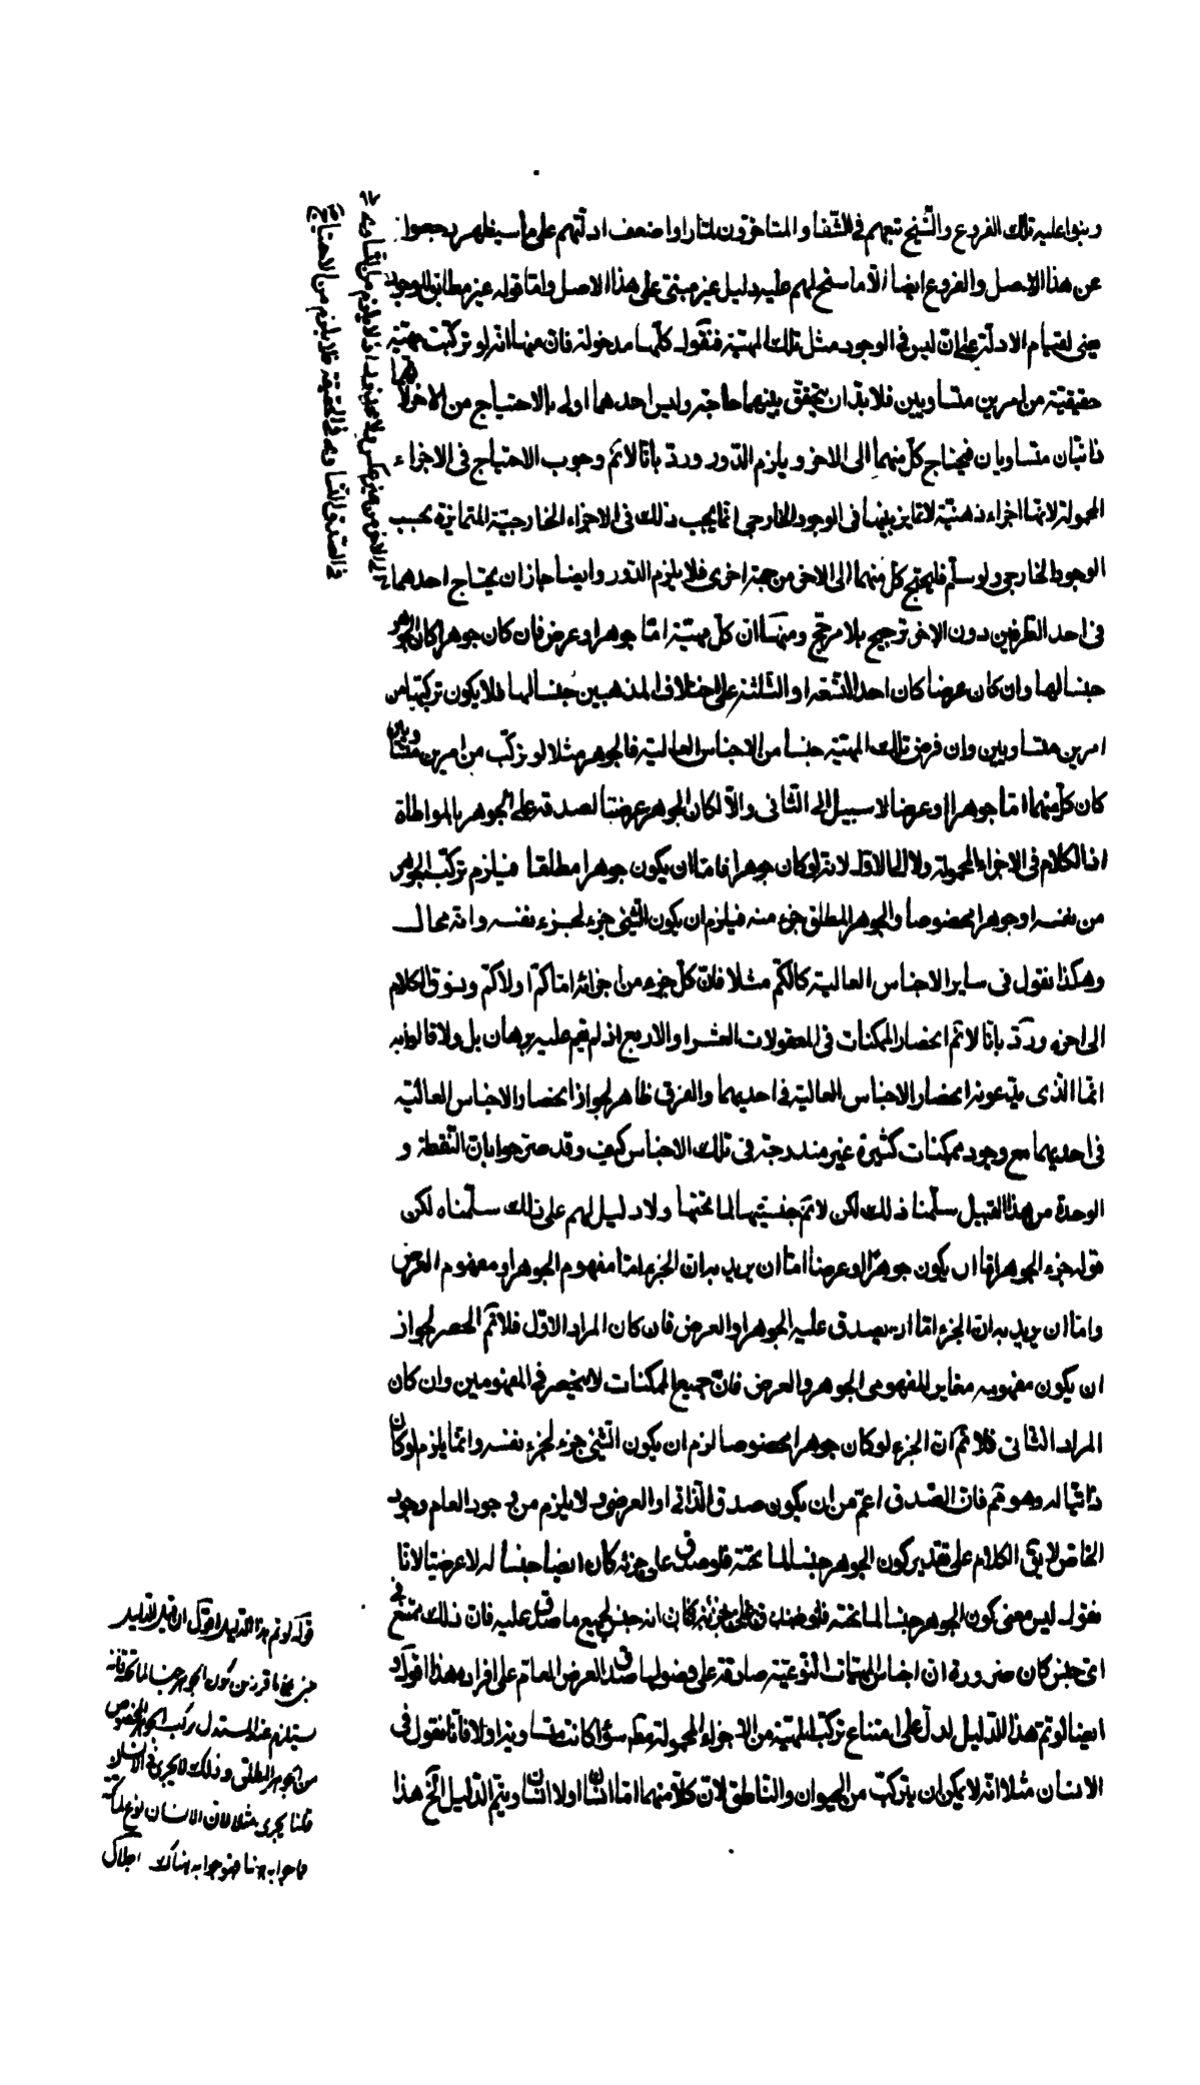 وبنوا عليه تلك الفروع والشيخ تبعهم في الشفا والمتاخرون لما راوا ضعف ادلتهم على ما سيظهر رجعوا
عن هذا الاصل والفروع ايضا الا ما سنح لهم عليه دليل غير مبتنى على هذا الاصل واما قوله غير مطابق للوجود
يعنى لقيام الادلة على ان ليس في الوجود مثل تلك المهية فنقول كلها مدخولة فان منها انه لو تركبت مهية
حقيقية من امرين متساويين فلا بد ان يتحقق بينهما حاجة وليس احدهما اولى بالاحتياج من الاخر لانهما
ذاتيان متساويان فيحتاج كل منهما الى الاخر ويلزم الدور ورد بانا لانم وجوب الاحتياج في الاجزاء
المحمولة لانها اجزاء ذهنية لا تمايز بينها في الوجود الخارجي انما يجب ذلك في الاجزاء الخارجية المتمايزة بحسب
الوجود الخارجي ولو سلم فليحتج كل منهما الى الاخر من جهة اخرى فلا يلزم الدور وايضا جاز ان يحتاج احدهما
الى الاخر من غير عكس ولا محذور اذ لا يلزم من التساوى
في الصدق التساوى في الحقيقة فلا يلزم من الاحتياج
في احد الطرفين دون الاخر ترجيح بلا مرجح ومنها ان كل مهية اما جوهر او عرض فان كان جوهرا كان الجوهر
جنسا لها وان كان عرضا كان احد التسعة او الثلثة على اختلاف المذهبين جنسا لها فلا يكون تركبها من
امرين متساويين وان فرض تلك المهية جنسا من الاجناس العالية فالجوهر مثلا لو تركب من امرين متساويين
كان كل منهما اما جوهرا او عرضا لا سبيل الى الثانى والا لكان الجوهر عرضيا لصدقه على الجوهر بالمواطاة
اذ الكلام في الاجزاء المحمولة ولا الى الاول لانه لو كان جوهرا فاما ان يكون جوهرا مطلقا فيلزم تركب الجوهر
من نفسه او جوهرا مخصوصا والجوهر المطلق جزء منه فيلزم ان يكون الشيئ جزء لجزء نفسه وانه محال
وهكذا نقول في ساير الاجناس العالية كالكم مثلا فان كل جزء من اجزائه اما كم او لا كم ونسوق الكلام
الى اخره ورد بانا لانم انحصار الممكنات في المقولات العشر او الاربع اذ لم يقم عليه برهان بل ولا قالوا به
انما الذى يدعونه انحصار الاجناس العالية في احديهما والفرق ظاهر لجواز انحصار الاجناس العالية
في احديهما مع وجود ممكنات كثيرة غير مندرجة في تلك الاجناس كيف وقد صرحوا بان النقطة و
الوحدة من هذا القبيل سلمنا ذلك لكن لانم جنسيتها لما تحتها ولا دليل لهم على ذلك سلمناه لكن
قوله جزء الجوهر اما ان يكون جوهرا او عرضا اما ان يريد به ان الجزء اما مفهوم الجوهر او مفهوم العرض
واما ان يريد به ان الجزء اما ان يصدق عليه الجوهر او العرض فان كان المراد الاول فلانم الحصر لجواز
ان يكون مفهومه مغايرا لمفهومى الجوهر والعرض فان جميع الممكنات لا ينحصر في المفهومين وان كان
المراد الثانى فلانم ان الجزء لو كان جوهرا مخصوصا لزم ان يكون الشيئ جزء لجزء نفسه وانما يلزم لو كان
ذاتيا له وهو مم فان الصدق اعم من ان يكون صدق الذاتى او العرضى ولا يلزم من وجود العام وجود
الخاص لا يق الكلام على تقدير كون الجوهر جنسا لما تحته فلو صدق على جزئه كان ايضا جنسا له لا عرضيا لانا
نقول ليس معنى كون الجوهر جنسا لما تحته انه جنس لجميع ما صدق عليه فان ذلك يمتنع في
اى جنس كان ضرورة ان اجناس المهيات النوعية صادقة على فصولها صدق العرض العام على افراده هذا اقول و
ايضا لو تم هذا الدليل لدل على امتناع تركب المهية من الاجزاء المحمولة مط سواء كانت متساوية او لا فانا نقول في
الانسان مثلا انه لا يمكن ان يتركب من الحيوان والناطق لان كلا منهما اما انسان او لا انسان ويتم الدليل الخ هذا
قوله لو تم هذا الدليل اقول ان قيل الدليل
مبنى على ما قرر من كون الجوهر جنسا لما تحته فانه
يستلزم عند المستدل تركب الجوهر المخصوص
من الجوهر المطلق وذلك لا يجرى في الانسان
قلنا يجرى مثلا فان الانسان نوع لما تحته
فما جوابه هنا فهو جوابه هناك اجلال